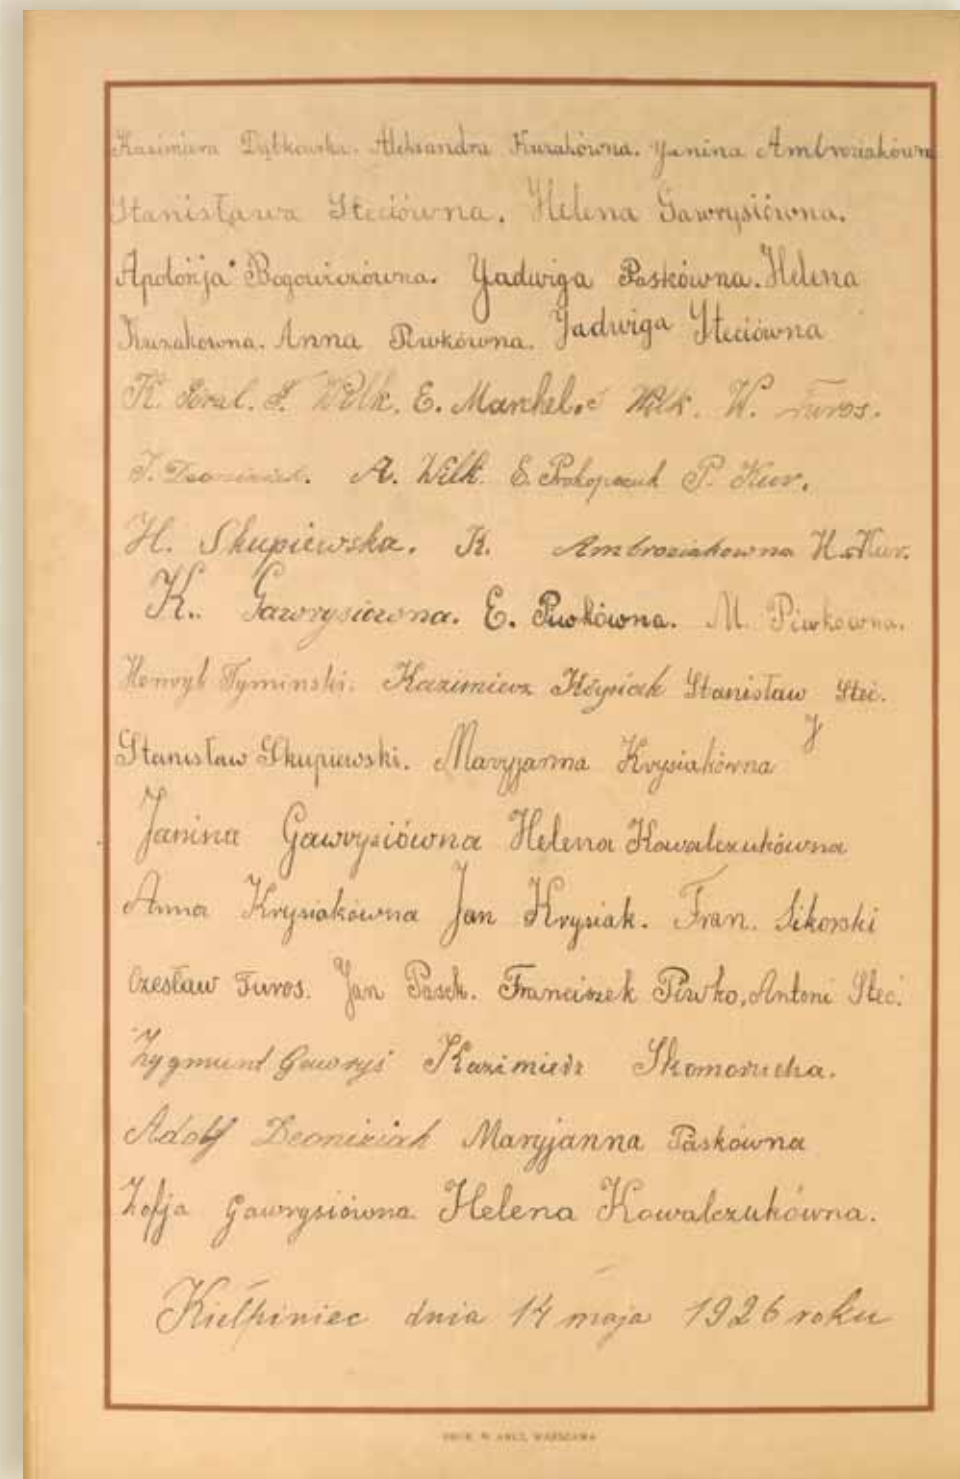 Kazimiera Dybkowska. Aleksandra Kurzakówna. Janina Ambroziakówn
Stanisława Steciówna. Helena Gawrysiówna.
Apolonja Bogowiczówna. Jadwiga Paskówna. Helena
Kurzakówna. Anna Piwkówna. Jadwiga Steciówna
K. Góral. F. Wilk. E. Marchel. Wilk. W. Turos.
A. Wilk. E. Prokopczuk P. Kur.
H. Skupiewska. K. Ambroziakowna H. Kur.
K. Gawrysiowna. E. Piwkówna. M. Piwkowna.
Henryk Tyminski. Kazimierz Krysiak Stanisław Steć.
Stanisław Skupiewski. Maryjanna Krysiakówna
Janina Gawrysiówna Helena Kowalczukówna
Anna Krysiakówna Jan Krysiak. Fran. Sikorski
Czesław Turos. Jan Pasek. Franciszek Piwko, Antoni Stec.
Zygmunt Gawryś Kazimierz Skomorucha.
Adolf Deoniziak Maryjanna Paskówna
Zofja Gawrysiówna Helena Kowalczukówna.
Kiełpiniec dnia 14 maja 1926 roku
DRUK. W. ARCT, WARSZAWA